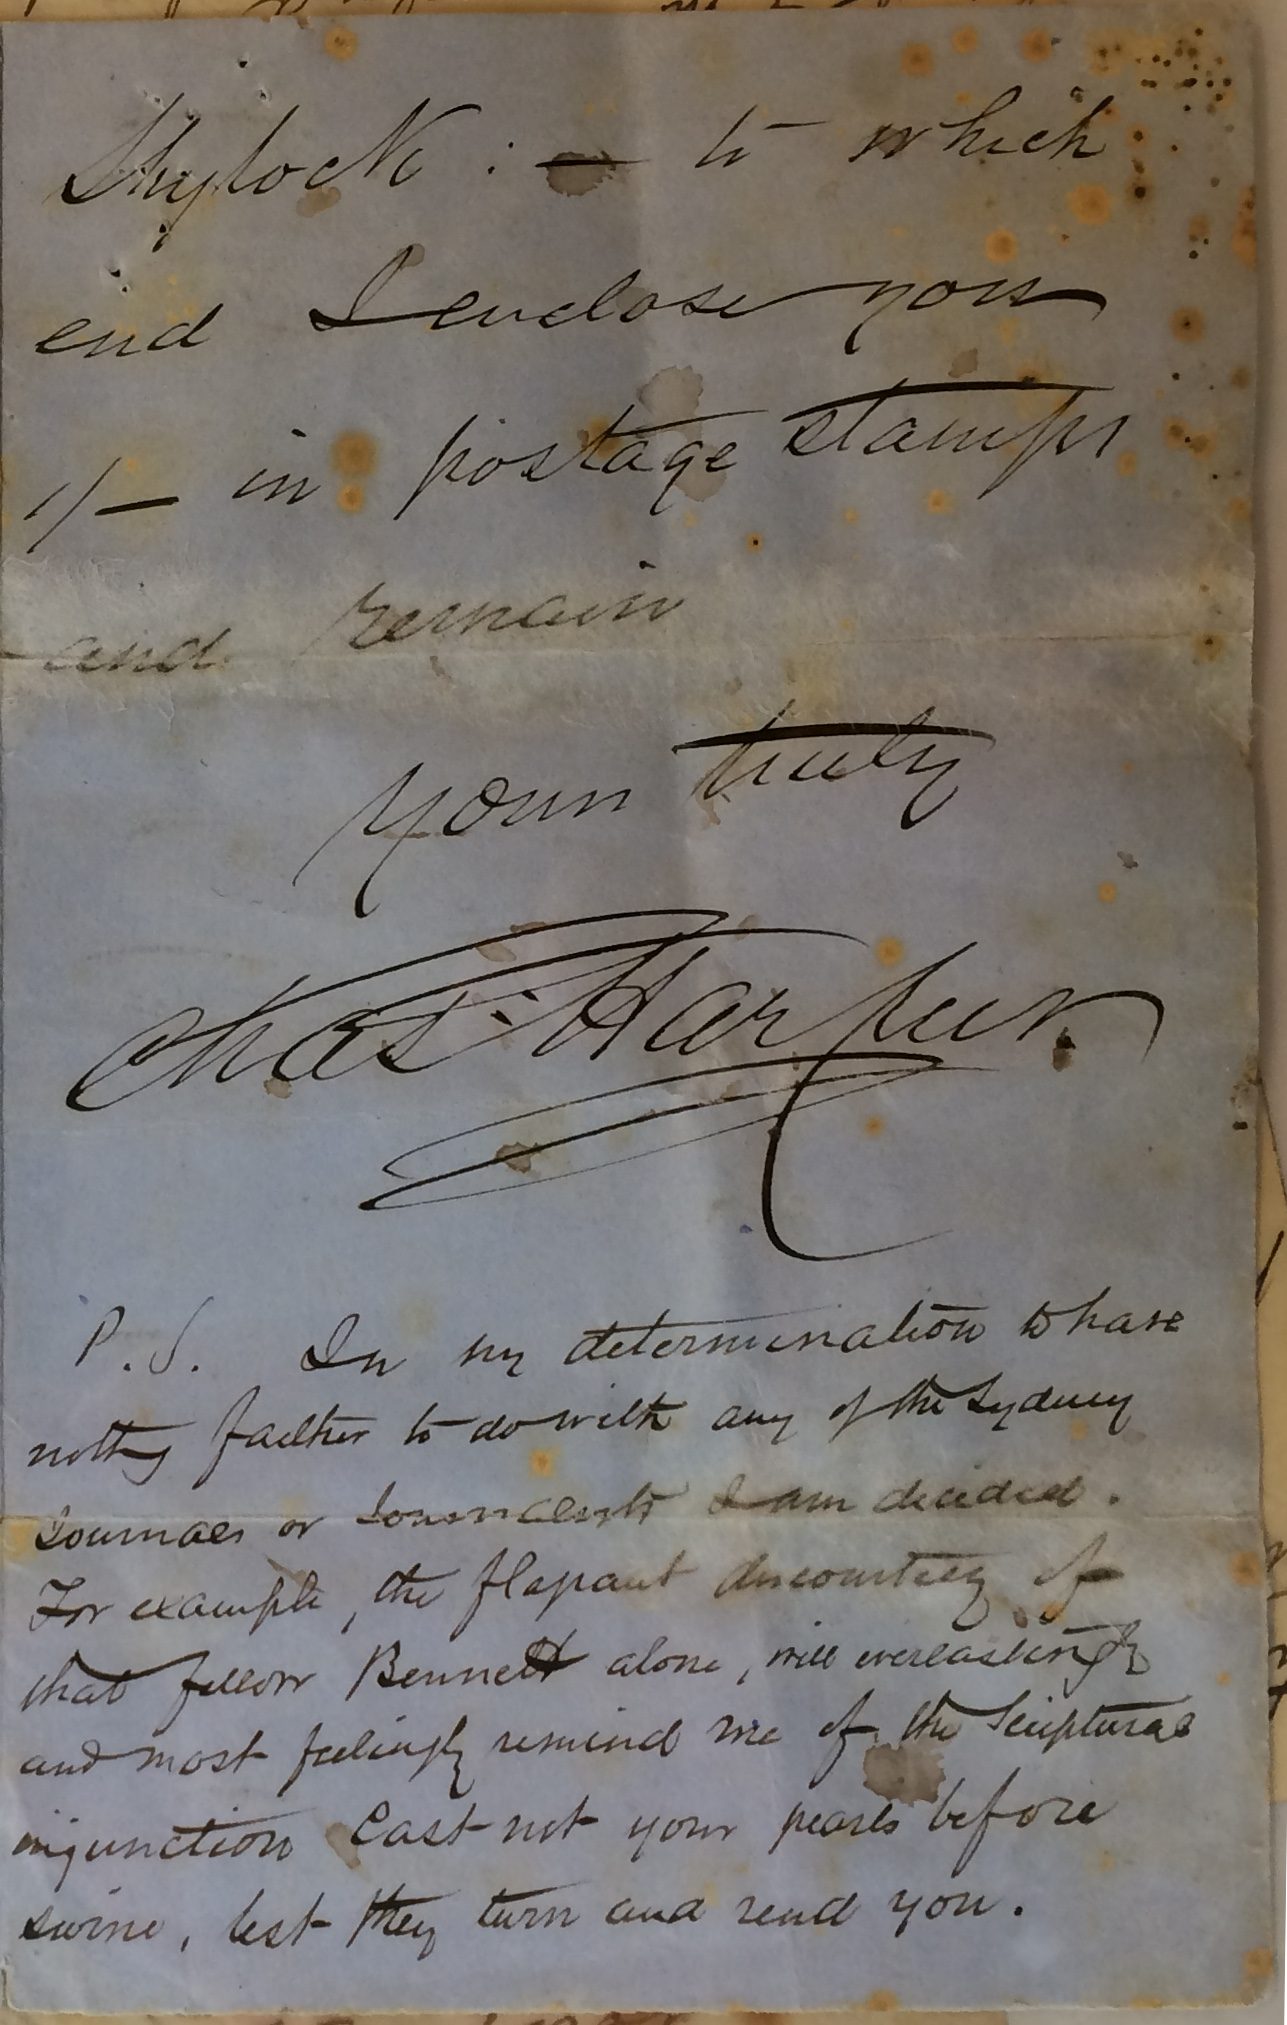 Shylock : — to which
end I enclose you
1/— in postage stamps
and remain
Yours truly
Chas. Harpur.
P. S. In my determination to have
nothg farther to do with any of the Sydney
Journals or Journalists I am decided.
For example, the flapant discourtesy of
that fellow Bennett alone, will everlastingly
and most feelingly remind me of the Scriptural
injunction Cast not your pearls before
swine, lest they turn and rend you.